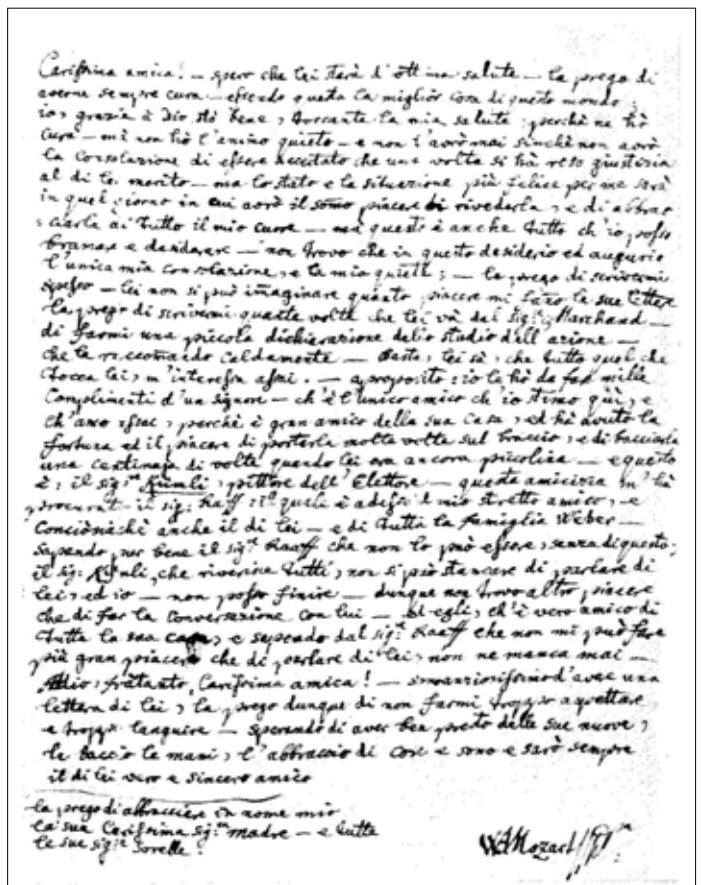 Carissima amica! — spero che lei starà d'ottima salute — la prego di
averne sempre cura — essendo questa la miglior cosa di questo mondo;
io, grazia à Dio stò bene, toccante la mia salute, perchè ne hò
cura — mà non hò l'animo quieto — e non l'avrò mai sinchè non avrò
la consolazione di essere accertato che una volta si hà reso giustizia
al di lei merito — ma lo stato e la situazione più felice per me sarà
in quel giorno in cui avrò il sommo piacere di rivederla, e di abbrac
ciarla di tutto il mio cuore — mà questo è anche tutto ch'io posso
bramare e desiderare — non trovo che in questo desiderio ed augurio
l'unica mia consolazione, e la mia quiete; — la prego di scrivermi
spesso — lei non si può imaginare quanto piacere mi fano le sue lettere
la prego di scrivermi quante volte che lei và dal Sig: Marchand —
di farmi una piccola dichiarazione dello studio dell azione —
che le raccomando caldamente — Basta, lei sà, che tutto quel che
tocca lei, m'interessa assai. — a proposito; io le hò da far mille
Complimenti d'un signore — ch'è l'unico amico ch'io stimo quì, e
ch'amo assai, perchè è gran amico della sua Casa, ed hà avuto la
fortuna ed il piacere di porterla molte volte sul braccio, e di bacciarla
una centinaja di volte quando lei era ancora piccolina — e questo
è, il sig:re Kümli, pittore dell'Elettore — questa amicizia m'hà
procurato il sig: Raaff, il quale è adesso il mio stretto amico, e
Conciosiachè anche il di lei — e di tutta la famiglia Weber —
Sapendo pur bene il sig:re Raaff che non lo può essere, senza di questo;
il sig: Kümli, che riverisce tutti, non si può stancare di parlare di
lei, ed io — non posso finire — dunque non trovo altro piacere
che di far la Conversazione con lui — ed egli, ch'è vero amico di
tutta la sua casa, e sapendo dal sig:re Raaff che non mi può fare
più gran piacere che di parlare di lei, non ne manca mai —
Adio, frattanto, Carissima amica! — sono anziosissimo d'avere una
lettera di lei, la prego dunque di non farmi troppo aspettare,
e troppo languire — sperando di aver ben presto delle sue nuove,
le baccio le mani, l'abbraccio di core e sono e sarò sempre
il di lei vero e sincero amico
la prego di abbracciere in nome mio
la sua Carissima sig:ra madre — e tutte
le sue sig:re Sorelle.
WAMozart